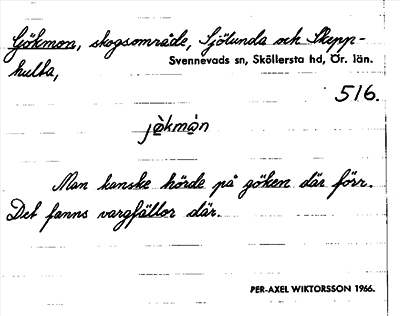 Gökmon, skogsområde, Sjölunda och Skepp-
hulta,
Svennevads sn, Sköllersta hd, Ör. län.
516.
jø̀kmɷ̀n
Man kanske hörde på göken där förr.
Det fanns vargfällor där.
PER-AXEL WIKTORSSON 1966.